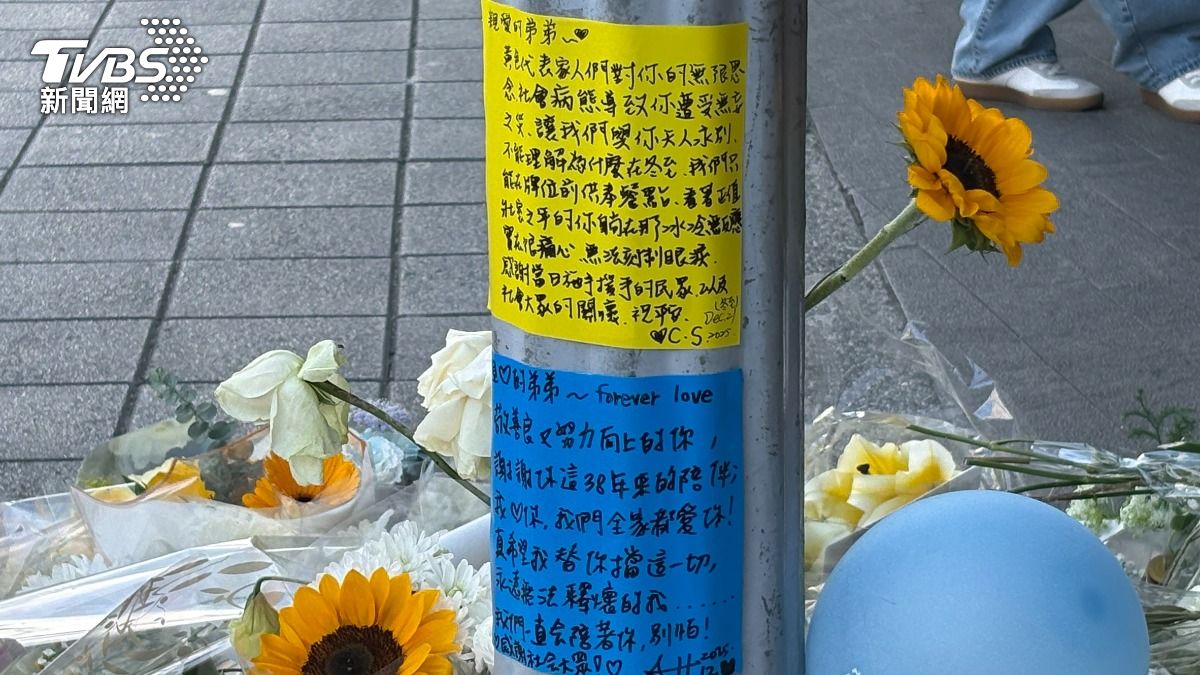 TVBS
新聞網
親愛的弟弟～♥
謹代表家人們對你的無限思
念社會病態導致你遭受無妄
之災、讓我們與你天人永別、
不能理解為什麼在冬至、我們只
能在牌位前供奉餐點、看著正值
壯年的你躺在那冰冷無回應
實在很痛心、無法刻制眼淚、
感謝當日施手援手的民眾、以及
社會大眾的關懷、祝平安、
(冬至)
Dec.21
♥C.S. 2025.
♡的弟弟～ forever love
善良又努力向上的你，
謝謝你這38年來的陪伴；
我♡你，我們全家都愛你！
真希望我替你擋這一切，
永遠無法釋懷的我.......
我們一直會陪著你，別怕！
感謝社會大眾！♡
2025.
12.♥